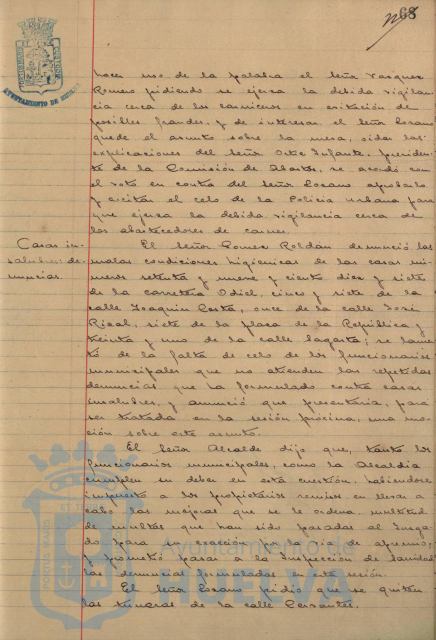 68
AYUNTAMIENTO DE HUELVA
hacer uso de la palabra el Señor Vazquez
Romero pidiendo se ejerza la debida vigilan-
cia cerca de los carniceros en evitación de
posibles fraudes, y de interesar el Señor Lozano
quede el asunto sobre la mesa, oidas las
explicaciones del Señor Ortiz Infante, presiden-
te de la Comisión de Abastos, se acordó con
el voto en contra del Señor Lozano aprobarlo
y excitar el celo de la Policia urbana para
que ejerza la debida vigilancia cerca de
los abastecedores de carnes.
Casas in-
salubres: de-
nuncias.
El Señor Gomez Roldán denunció las
malas condiciones higienicas de las casas nú-
meros setenta y nueve y ciento diez y siete
de la carretera Odiel, cinco y siete de la
calle Joaquin Costa, once de la calle José
Rizal, siete de la plaza de la República y
treinta y uno de la calle Lagasta; se lamen-
tó de la falta de celo de los funcionarios
municipales que no atienden las repetidas
denuncias que ha formulado contra casas
insalubres, y anunció que presentaria, para
ser tratada en la sesión próxima, una mo-
ción sobre este asunto.
El Señor Alcalde dijo que, tanto los
funcionarios municipales, como la Alcaldia
cumplen su deber en esta cuestión, habiendose
impuesto a los propietarios remisos en llevar a
cabo las mejoras que se le ordena, multitud
de multas que han sido pasadas al Juzga-
do para su exacción por la via de apremio,
y prometió pasar a la Inspección de Sanidad
las denuncias formuladas en esta sesión.
El Señor Lozano pidió que se quiten
las tuneras de la calle Cervantes.
PORTUS MARIS
Ayuntamiento de
HUELVA